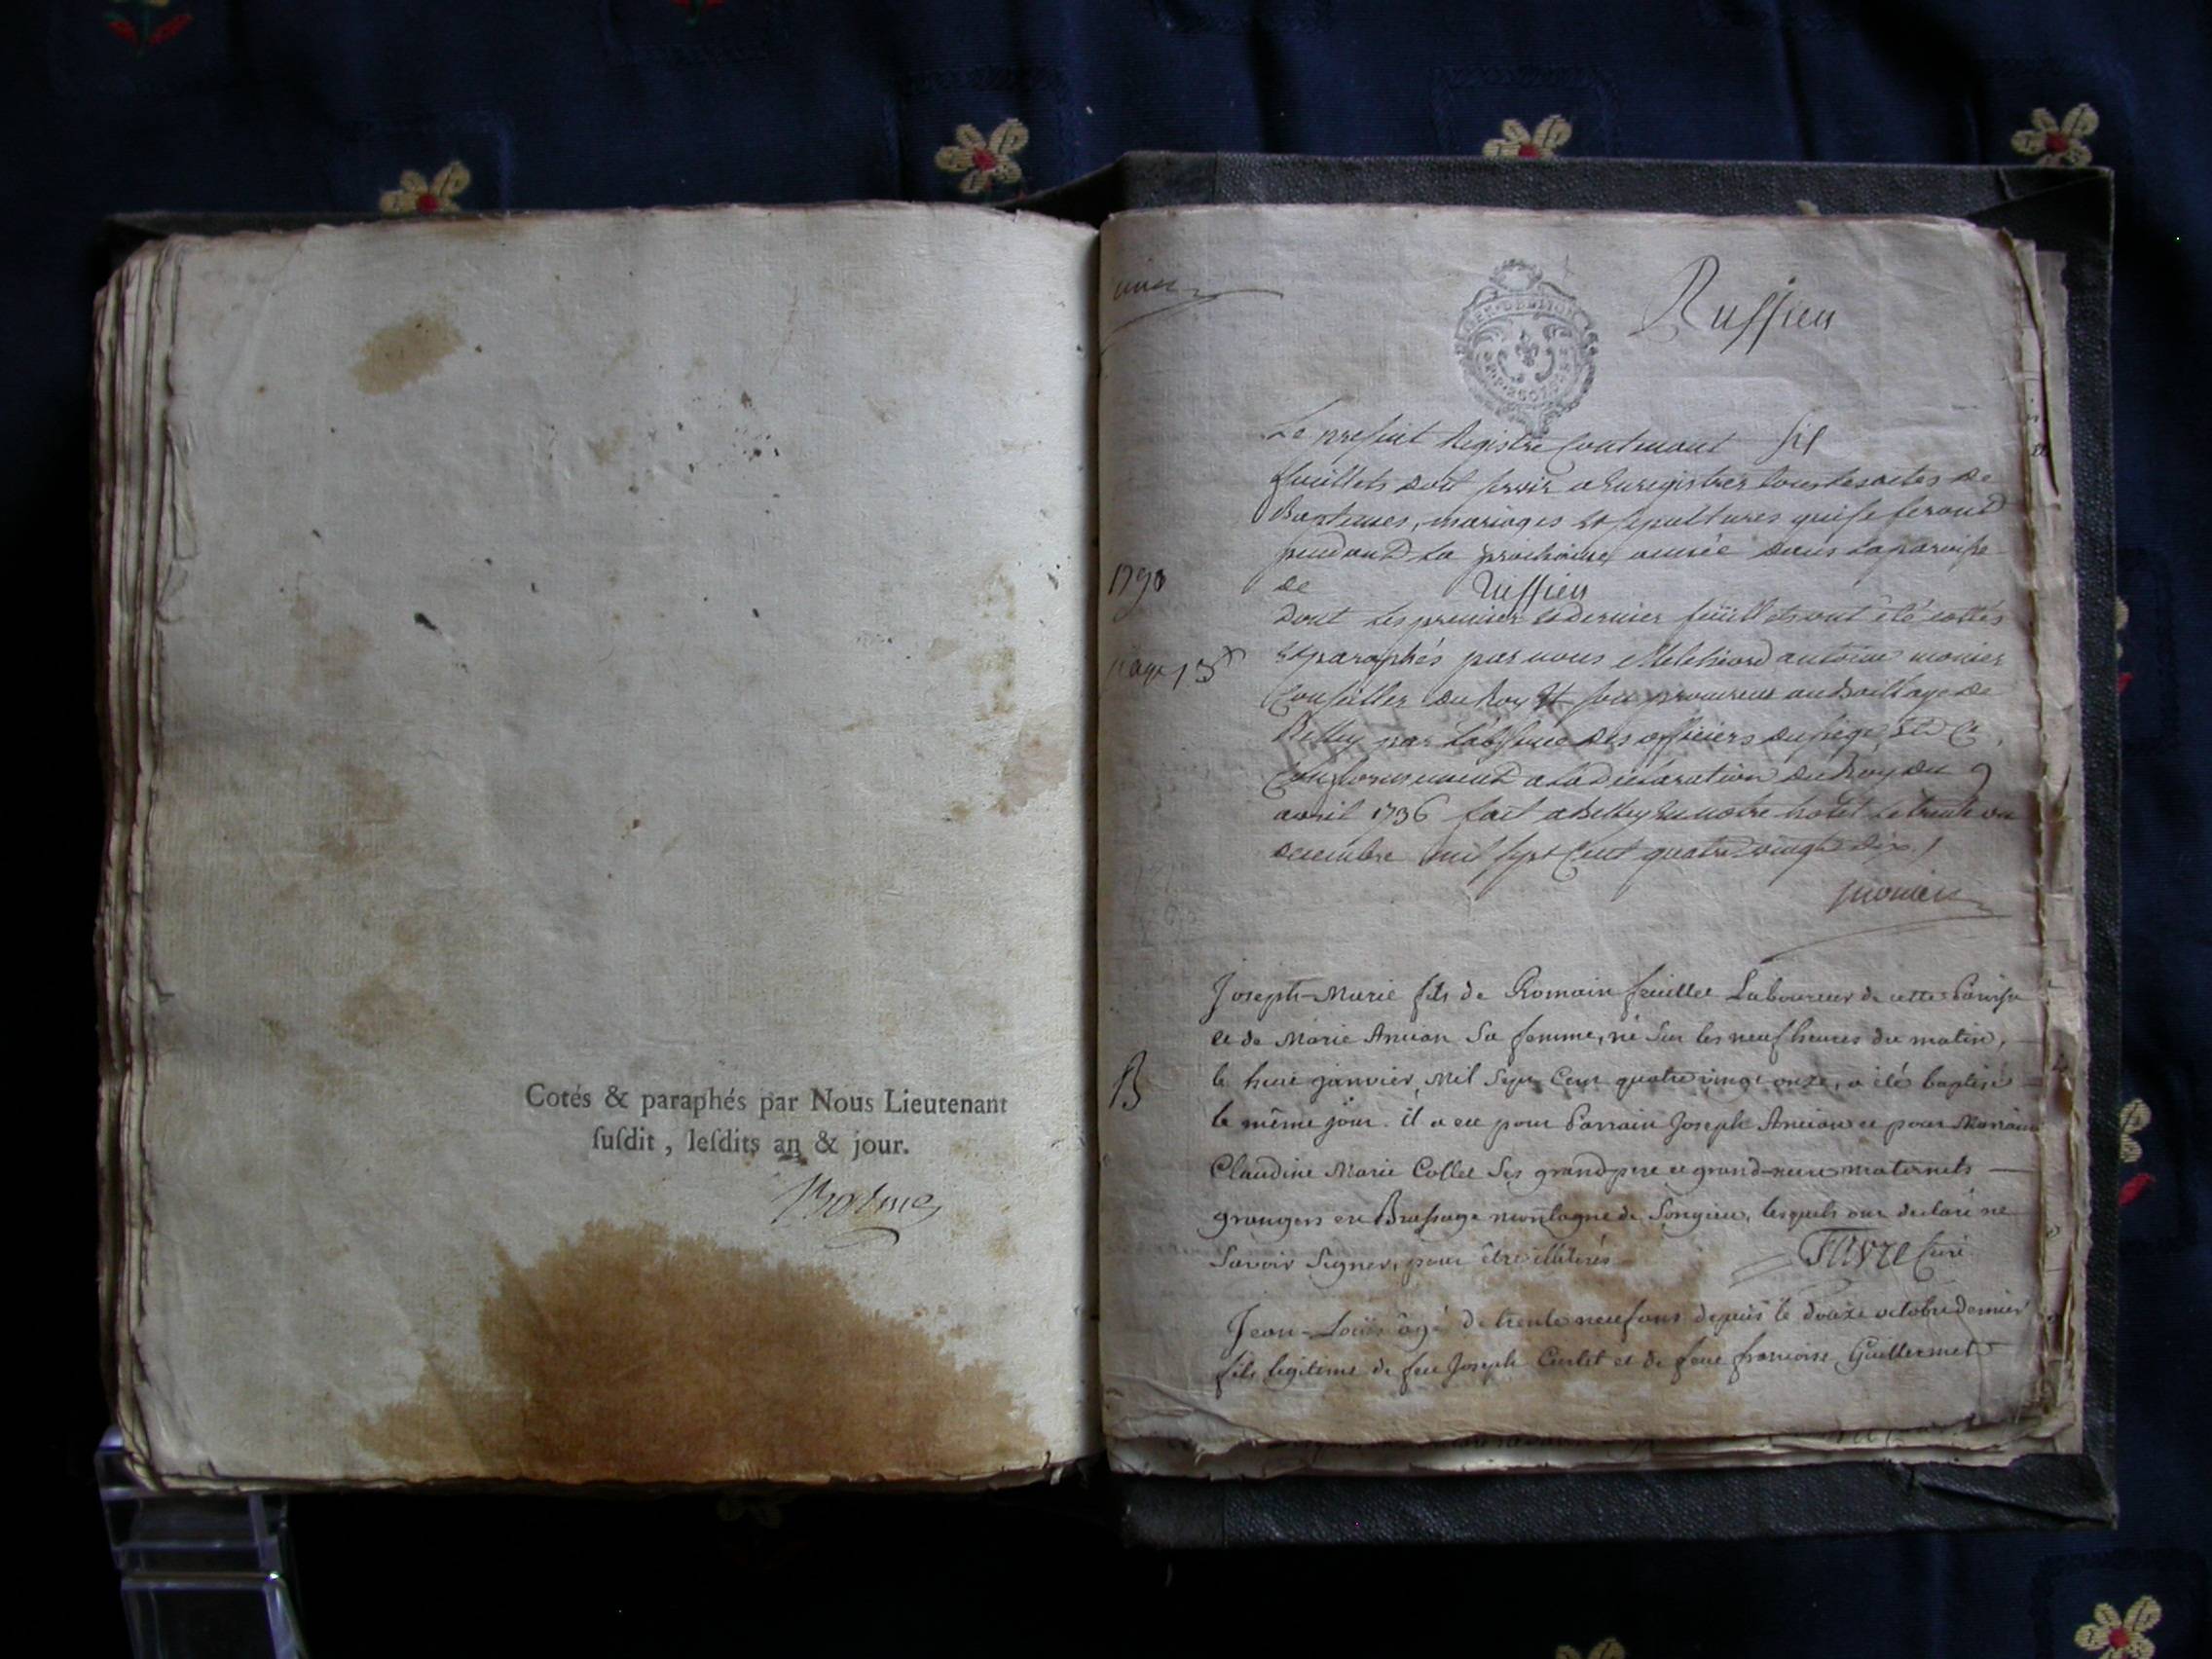 Cotés & paraphés par Nous Lieutenant
ſuſdit, leſdits an & jour.
Ruffieu
Le present Registre Contenant six
feuillets doit servir a Enregistrer tous les actes de
Baptemes, mariages Et sepultures qui se feront
pendant La prochaine année dans La paroisse
de Ruffieu
1790
dont Les premier Et dernier feuillets ont été cottés
Et paraphés par nous Melchiord antoine monier
Conseiller du Roy Et son procureur au Bailliage de
Belley par L'absence des officiers du siege, Et Ce
Conformement a La declaration du Roy du 9
avril 1736 fait a Belley En notre hotel Le trente un
decembre mil sept Cent quatre vingt dix.
monier
Joseph-Marie fils de Romain feuillet Laboureur de cette Paroisse
et de Marie Ancian Sa femme, né Sur les neuf heures du matin,
B
le huit janvier Mil Sept Cent quatre vingt onze, a été baptisé
le même jour. il a eu pour Parrain Joseph Ancian et pour Marraine
Claudine Marie Collet Ses grand-pere et grand-mere maternels
grangers en montagne de Songieu, lesquels ont déclaré ne
Savoir Signer, pour être illiterés
Favre Curé
Jean-Loüis âgé de trente neuf ans depuis le douze octobre dernier
fils légitime de feu Joseph Curlet et de feue francoise Guillermet